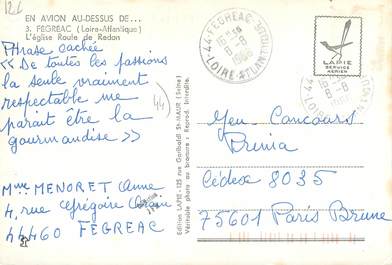 EN AVION AU-DESSUS DE...
3. FEGREAC (Loire-Atlantique)
L'église Route de Redon
Phrase cachée
« De toutes les passions
la seule vraiment
respectable me
paraît être la
gourmandise »
44
Mme MENORET Anne
4, rue Grégoire Orain
44460 FEGREAC
Edition LAPIE - 125 rue Garibaldi St-MAUR (Seine)
Véritable photo au bromure : Reprod. Interdite.
44 FEGREAC
LOIRE-ATLANTIQUE
LAPIE
SERVICE
AERIEN
Jeu-Concours
Cédex 8035
75601 Paris Brune